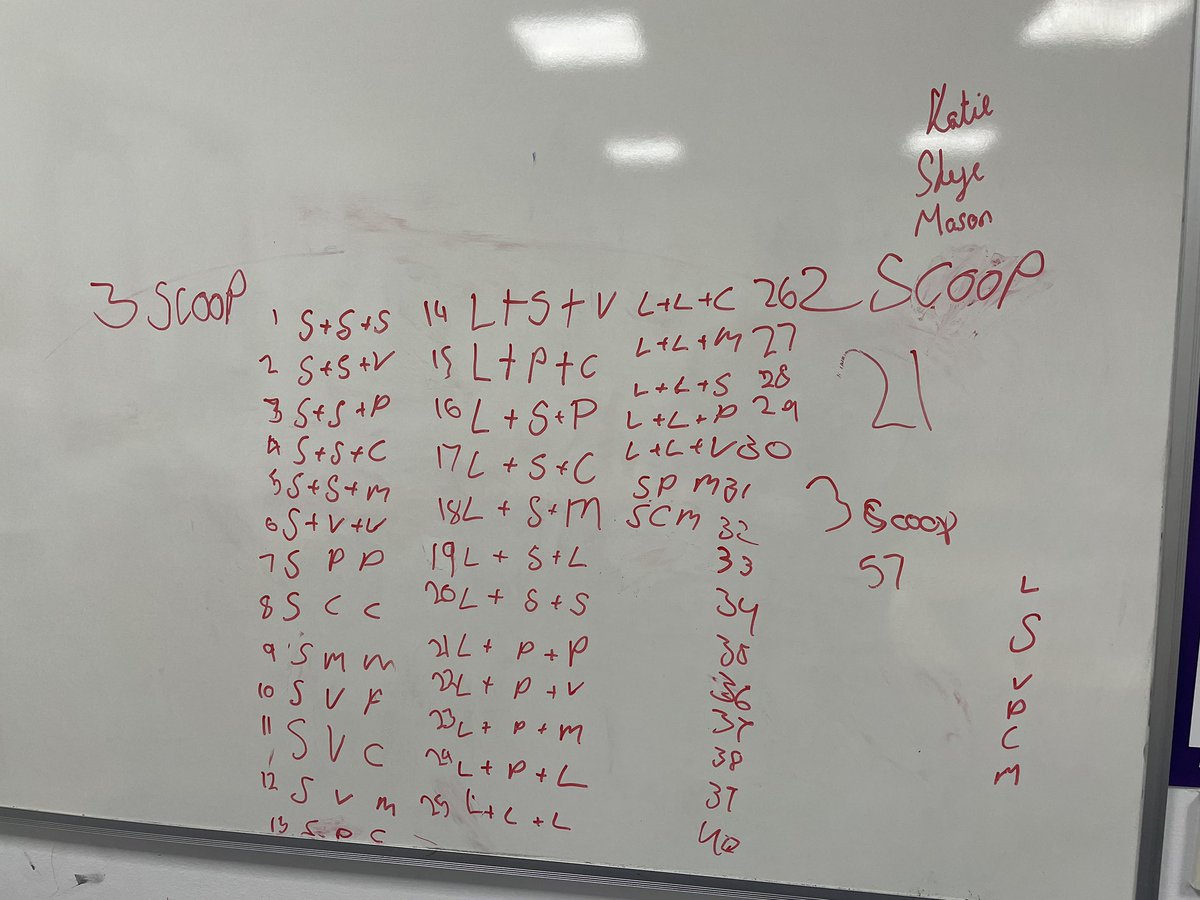 Katie
Skye
Mason
3 SCOOP
1 S+S+S
2 S+S+V
3 S+S+P
4 S+S+C
5 S+S+M
6 S+V+V
7 S P P
8 S C C
9 S M M
10 S V P
11 S V C
12 S V M
13 S P C
14 L+S+V
15 L+P+C
16 L+S+P
17 L+S+C
18 L+S+M
19 L+S+L
20 L+S+S
21 L+P+P
22 L+P+V
23 L+P+M
24 L+P+L
25 L+L+L
L+L+C 26
L+L+M 27
L+L+S 28
L+L+P 29
L+L+V 30
S P M 31
S C M 32
33
34
35
36
37
38
39
40
2 SCOOP
21
3 Scoop
57
L
S
V
P
C
M